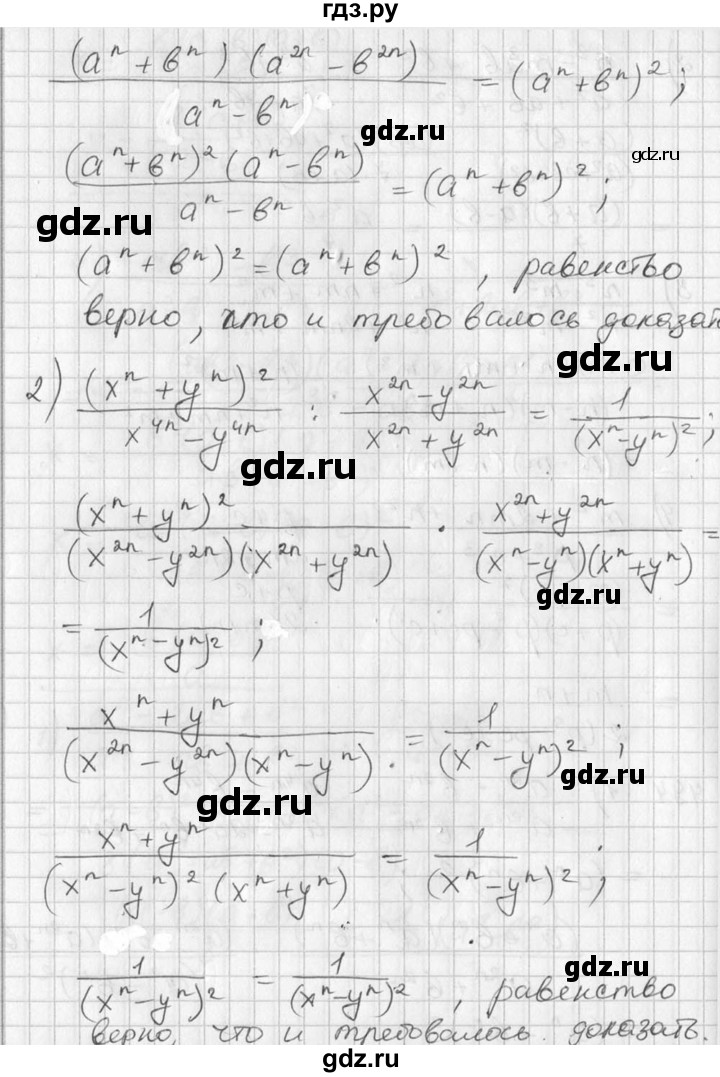 гдз.ру
(aⁿ + вⁿ) (a²ⁿ − в²ⁿ) / (aⁿ − вⁿ) = (aⁿ + вⁿ)²;
gdz.ru
gdz.ru
(aⁿ + вⁿ)² (aⁿ − вⁿ) / aⁿ − вⁿ = (aⁿ + вⁿ)²;
gdz.ru
(aⁿ + вⁿ)² = (aⁿ + вⁿ)², равенство
верно, что и требовалось доказат
gdz.ru
2) (xⁿ + yⁿ)² / x⁴ⁿ − y⁴ⁿ : x²ⁿ − y²ⁿ / x²ⁿ + y²ⁿ = 1 / (xⁿ − yⁿ)²;
gdz.ru
(xⁿ + yⁿ)² / (x²ⁿ − y²ⁿ)(x²ⁿ + y²ⁿ) · x²ⁿ + y²ⁿ / (xⁿ − yⁿ)(xⁿ + yⁿ) =
gdz.ru
= 1 / (xⁿ − yⁿ)²;
xⁿ + yⁿ / (x²ⁿ − y²ⁿ)(xⁿ − yⁿ) = 1 / (xⁿ − yⁿ)²;
gdz.ru
gdz.ru
xⁿ + yⁿ / (xⁿ − yⁿ)² (xⁿ + yⁿ) = 1 / (xⁿ − yⁿ)²;
gdz.ru
1 / (xⁿ − yⁿ)² = 1 / (xⁿ − yⁿ)², равенство
верно, что и требовалось доказать.
gdz.ru